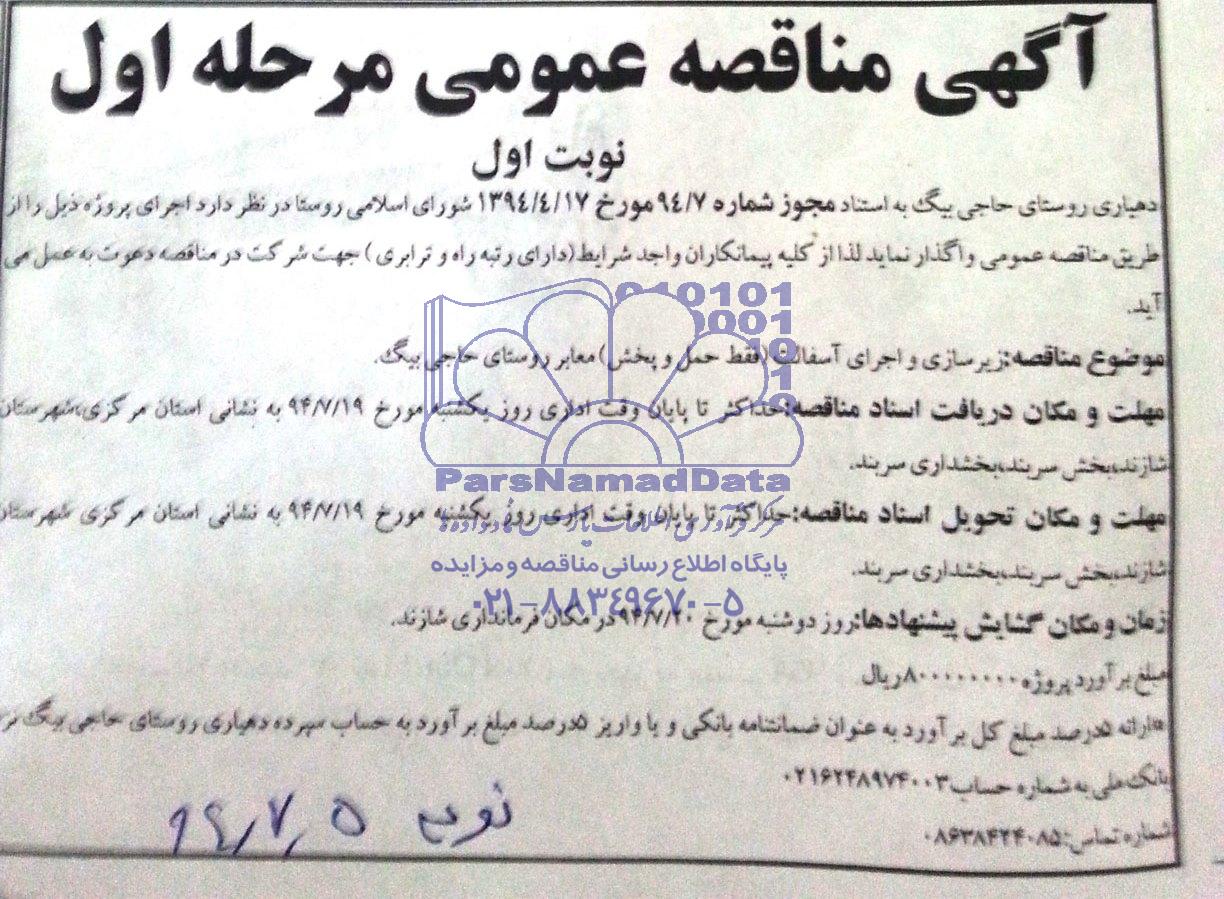 آگهی مناقصه عمومی مرحله اول
نوبت اول
دهیاری روستای حاجی بیگ به استناد مجوز شماره ۹٤/۷ مورخ ۱۳۹٤/٤/۱۷ شورای اسلامی روستا در نظر دارد اجرای پروژه ذیل را از
طریق مناقصه عمومی واگذار نماید لذا از کلیه پیمانکاران واجد شرایط(دارای رتبه راه و ترابری ) جهت شرکت در مناقصه دعوت به عمل می
آید.
موضوع مناقصه:زیرسازی و اجرای آسفالت(فقط حمل و پخش) معابر روستای حاجی بیگ.
مهلت و مکان دریافت اسناد مناقصه:حداکثر تا پایان وقت اداری روز یکشنبه مورخ ۹۴/۷/۱۹ به نشانی استان مرکزی،شهرستان
شازند،بخش سربند،بخشداری سربند.
مهلت و مکان تحویل اسناد مناقصه:حداکثر تا پایان وقت اداری روز یکشنبه مورخ ۹۴/۷/۱۹ به نشانی استان مرکزی شهرستان
شازند،بخش سربند،بخشداری سربند.
زمان و مکان گشایش پیشنهادها:روز دوشنبه مورخ ۹۴/۷/۲۰در مکان فرمانداری شازند.
مبلغ برآورد پروژه ریال
*ارائه ۵درصد مبلغ کل برآورد به عنوان ضمانتنامه بانکی و یا واریز ۵درصد مبلغ برآورد به حساب سپرده دهیاری روستای حاجی بیگ نزد
بانک ملی به شماره حساب۰۲۱۶۲۴۸۹۷۴۰۰۳
شماره تماس:۰۸۶۳۸۴۲۴۰۸۵
۹٤٫۷٫۵
010101
0001
10
1
0
ParsNamadData
مرکز فرآوری اطلاعات پارس نماد داده ها
پایگاه اطلاع رسانی مناقصه و مزایده
۰۲۱-۸۸۳٤۹۶۷۰-۵